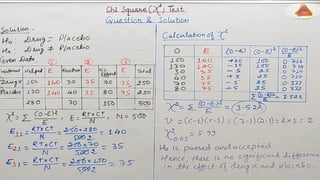 Chi Square (χ²) Test
Question & Solution
Solution-
Ho Drug = Placebo
H₂ Drug ≠ Placebo
Given Data
① ② ③
Helped E Reaction E E Total
Drug 150 140 30 35 70 75 250
Placebo 130 140 40 35 80 75 250
280 70 150 500
χ² = Σ (O-E)²/E , E = RT×CT/N N = 500
E₁₁ = RT×CT/N = 250×280/500 = 140
E₂₁ = RT×CT/N = 250×70/500 = 35
E₃₁ = RT×CT/N = 250×150/500 = 75
Calculation of χ²
O E (O-E) (O-E)² (O-E)²/E
150 140 +10 100 0.714
130 140 -10 100 0.714
30 35 -5 25 0.714
40 35 +5 25 0.714
70 75 -5 25 0.333
80 75 +5 25 0.333
Σ (O-E)²/E = 3.522
χ² = Σ (O-E)²/E = (3.522)
V = (C-1)(r-1) = (3-1)(2-1) = 2×1 = 2
χ²0.05 = 5.99
Ho is passed and accepted
Hence, there is no significant difference
in the effect of drug & placebo.